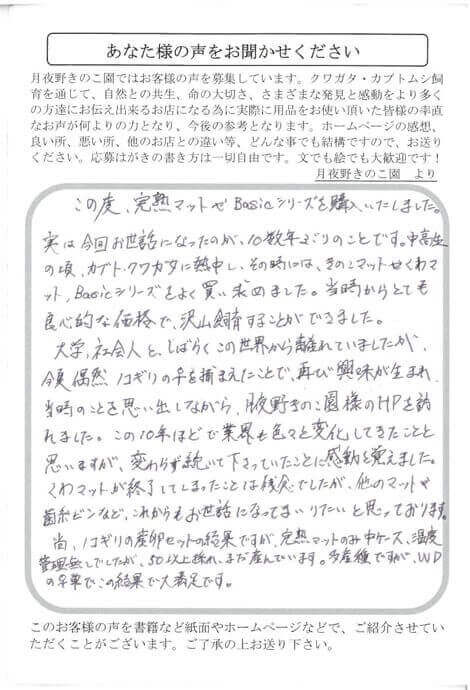 あなた様の声をお聞かせください
月夜野きのこ園ではお客様の声を募集しています。クワガタ・カブトムシ飼
育を通じて、自然との共生、命の大切さ、さまざまな発見と感動をより多く
の方達にお伝え出来るお店になる為に実際に用品をお使い頂いた皆様の率直
なお声が何よりの力となり、今後の参考となります。ホームページの感想、
良い所、悪い所、他のお店との違い等、どんな事でも結構ですので、お送り
ください。応募はがきの書き方は一切自由です。文でも絵でも大歓迎です！
月夜野きのこ園　より
この度、完熟マットやBasicシリーズを購入いたしました。
実は今回お世話になったのが、10数年ぶりのことです。中高生
の頃、カブト・クワガタに熱中し、その時には、きのこマットやくわマ
ット、Basicシリーズをよく買い求めました。当時からとても
良心的な価格で、沢山飼育することができました。
大学、社会人と、しばらくこの世界から離れていましたが、
今夏偶然ノコギリの♀を捕まえたことで、再び興味が生まれ、
当時のことを思い出しながら、月夜野きのこ園様のHPを訪
れました。この10年ほどで業界も色々と変化してきたことと
思いますが、変わらず続いて下さっていたことに感動を覚えました。
くわマットが終了してしまったことは残念でしたが、他のマットや
菌糸ビンなど、これからもお世話になってまいりたいと思っております。
尚、ノコギリの産卵セットの結果ですが、完熟マットのみ中ケース、温度
管理無しでしたが、50以上採れ、まだ産んでいます。多産種ですが、WD
の♀単でこの結果で大満足です。
このお客様の声を書籍など紙面やホームページなどで、ご紹介させてい
ただくことがございます。ご了承の上お送り下さい。